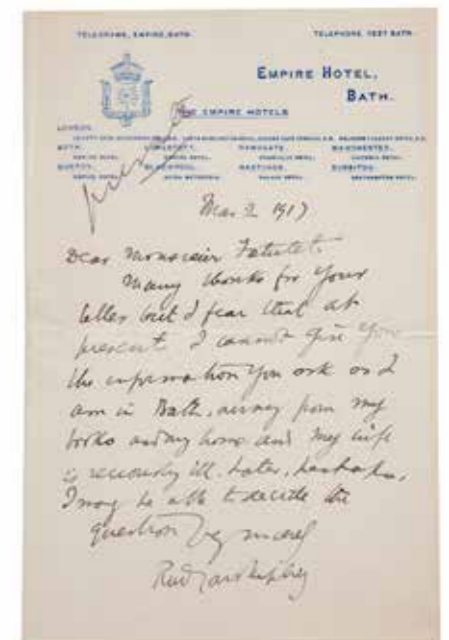 TELEGRAMS, EMPIRE, BATH.
TELEPHONE, 1237 BATH.
EMPIRE HOTEL,
BATH.
THE EMPIRE HOTELS
LONDON
BATH, LOWESTOFT, RAMSGATE MANCHESTER,
BUXTON, BLACKPOOL, HASTINGS, SURBITON,
private
Mar 2 1917
Dear Monsieur
Many thanks for your
letter but I fear that at
present I cannot give you
the information you ask as I
am in Bath, away from my
books and my home and my wife
is seriously ill. Later, perhaps,
I may be able to decide the
question by myself
Rudyard Kipling